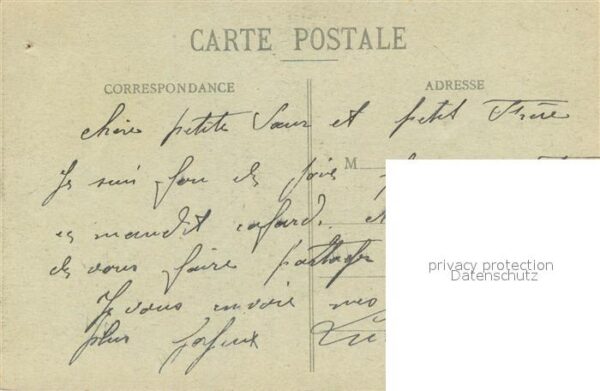 CARTE POSTALE
CORRESPONDANCE
ADRESSE
chère petite Sœur et petit Frère
M
Je suis fou de joie
ce maudit cafard.
de vous faire partager
Je vous envoie mes
plus joyeux
privacy protection
Datenschutz